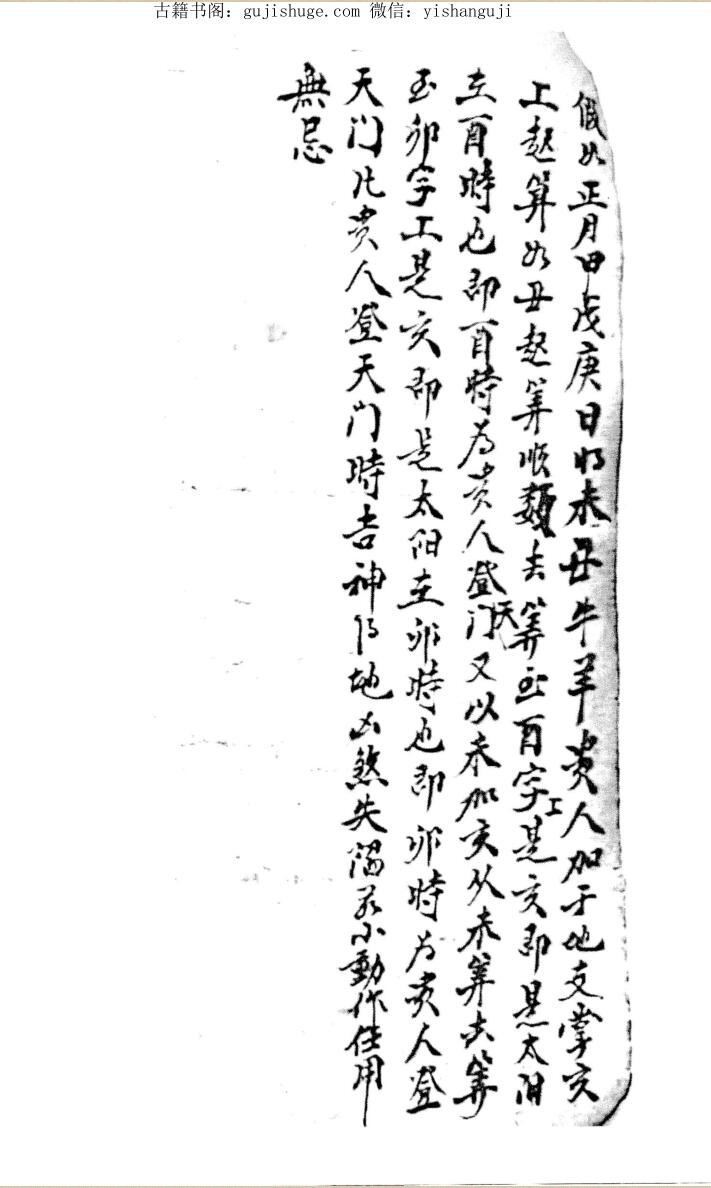 古籍书阁：gujishuge.com 微信：yishanguji
假如正月甲戊庚日將未丑牛羊貴人加于地支掌亥
上起算如丑起算順數去算至酉字上是亥即是太阳
在酉時也即酉時为貴人登天门又以未加亥从未算去算
至卯字上是亥即是太阳在卯時也即卯時为貴人登
天门凡貴人登天门時吉神得地凶煞失陷大小動作任用
無忌